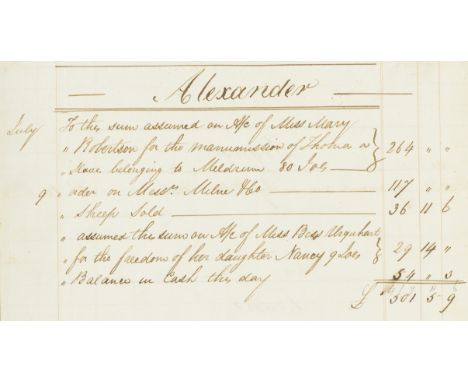 Alexander
July To this sum assumed on A/c of Miss Mary
" Robertson for the manumission of Thomas a
" Slave belonging to Meldrum 80 Joes — 264 " "
9 " ader on Messrs. Milne & Co — 117 " "
" Sheep Sold — 36 11 6
" assumed the sum on A/c of Miss Bess Urquhart
" for the freedom of her daughter Nancy 9 Joes 29 14 "
" Balance in Cash this day 54 " 3
£ 501 5 9